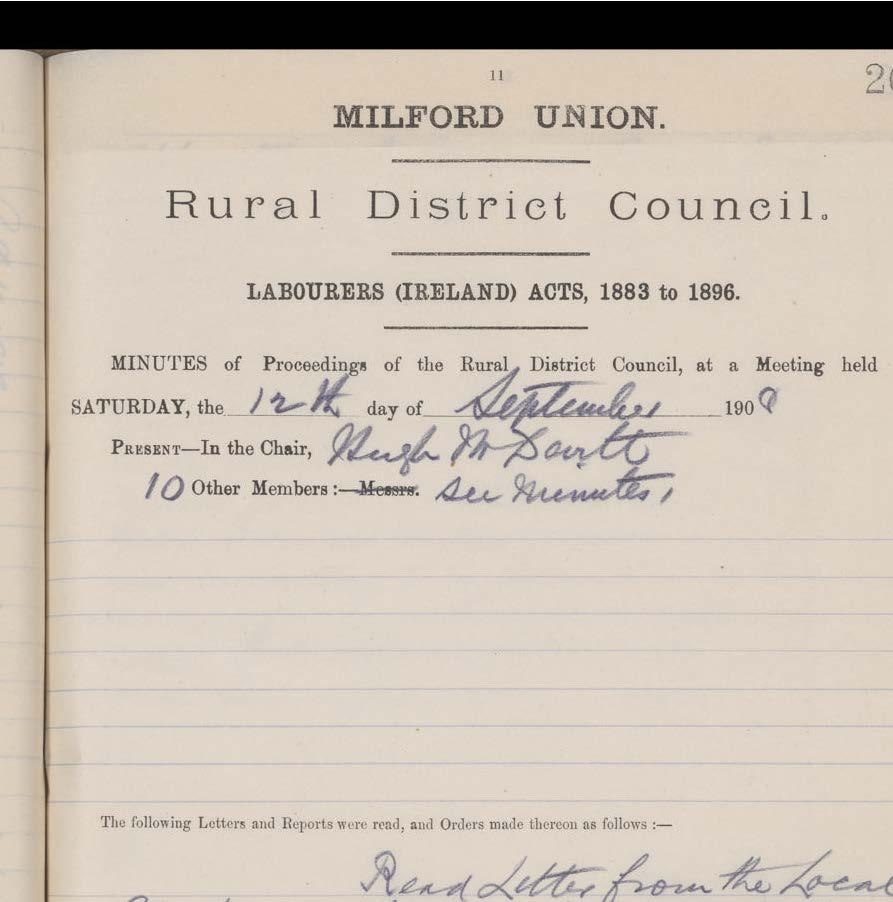 11
20
MILFORD UNION.
Rural District Council.
LABOURERS (IRELAND) ACTS, 1883 to 1896.
MINUTES of Proceedings of the Rural District Council, at a Meeting held
SATURDAY, the 12th day of September 1908
PRESENT—In the Chair, Hugh McDavitt
10 Other Members :—Messrs. See Minutes,
The following Letters and Reports were read, and Orders made thereon as follows :—
Read Letter from the Local